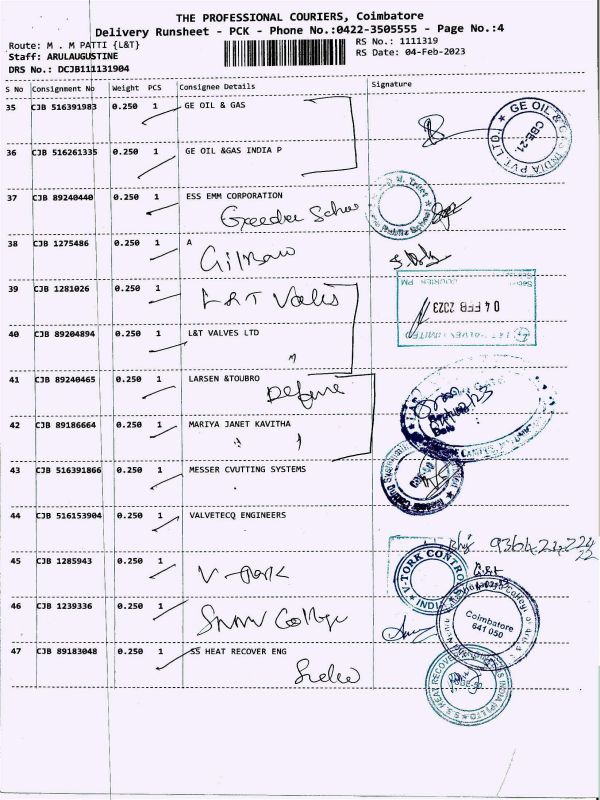 THE PROFESSIONAL COURIERS, Coimbatore
Delivery Runsheet - PCK - Phone No.:0422-3505555 - Page No.:4
Route: M . M PATTI {L&T}
RS No.: 1111319
Staff: ARULAUGUSTINE
RS Date: 04-Feb-2023
DRS No.: DCJB111131904
S No Consignment No Weight PCS Consignee Details Signature
35 CJB 516391983 0.250 1 GE OIL & GAS
GE OIL & INDIA PVT. LTD. CBE-21.
36 CJB 516261335 0.250 1 GE OIL &GAS INDIA P
37 CJB 89240440 0.250 1 ESS EMM CORPORATION
38 CJB 1275486 0.250 1 A
39 CJB 1281026 0.250 1 L&T Valves
04 FEB 2023
L&T VALVES LIMITED
40 CJB 89204894 0.250 1 L&T VALVES LTD
41 CJB 89240465 0.250 1 LARSEN &TOUBRO
42 CJB 89186664 0.250 1 MARIYA JANET KAVITHA
43 CJB 516391866 0.250 1 MESSER CVUTTING SYSTEMS
44 CJB 516153904 0.250 1 VALVETECQ ENGINEERS
45 CJB 1285943 0.250 1 V-Tork
V-TORK CONTRO INDIA
46 CJB 1239336 0.250 1 SNMV College
Coimbatore
641 050
47 CJB 89183048 0.250 1 SS HEAT RECOVER ENG